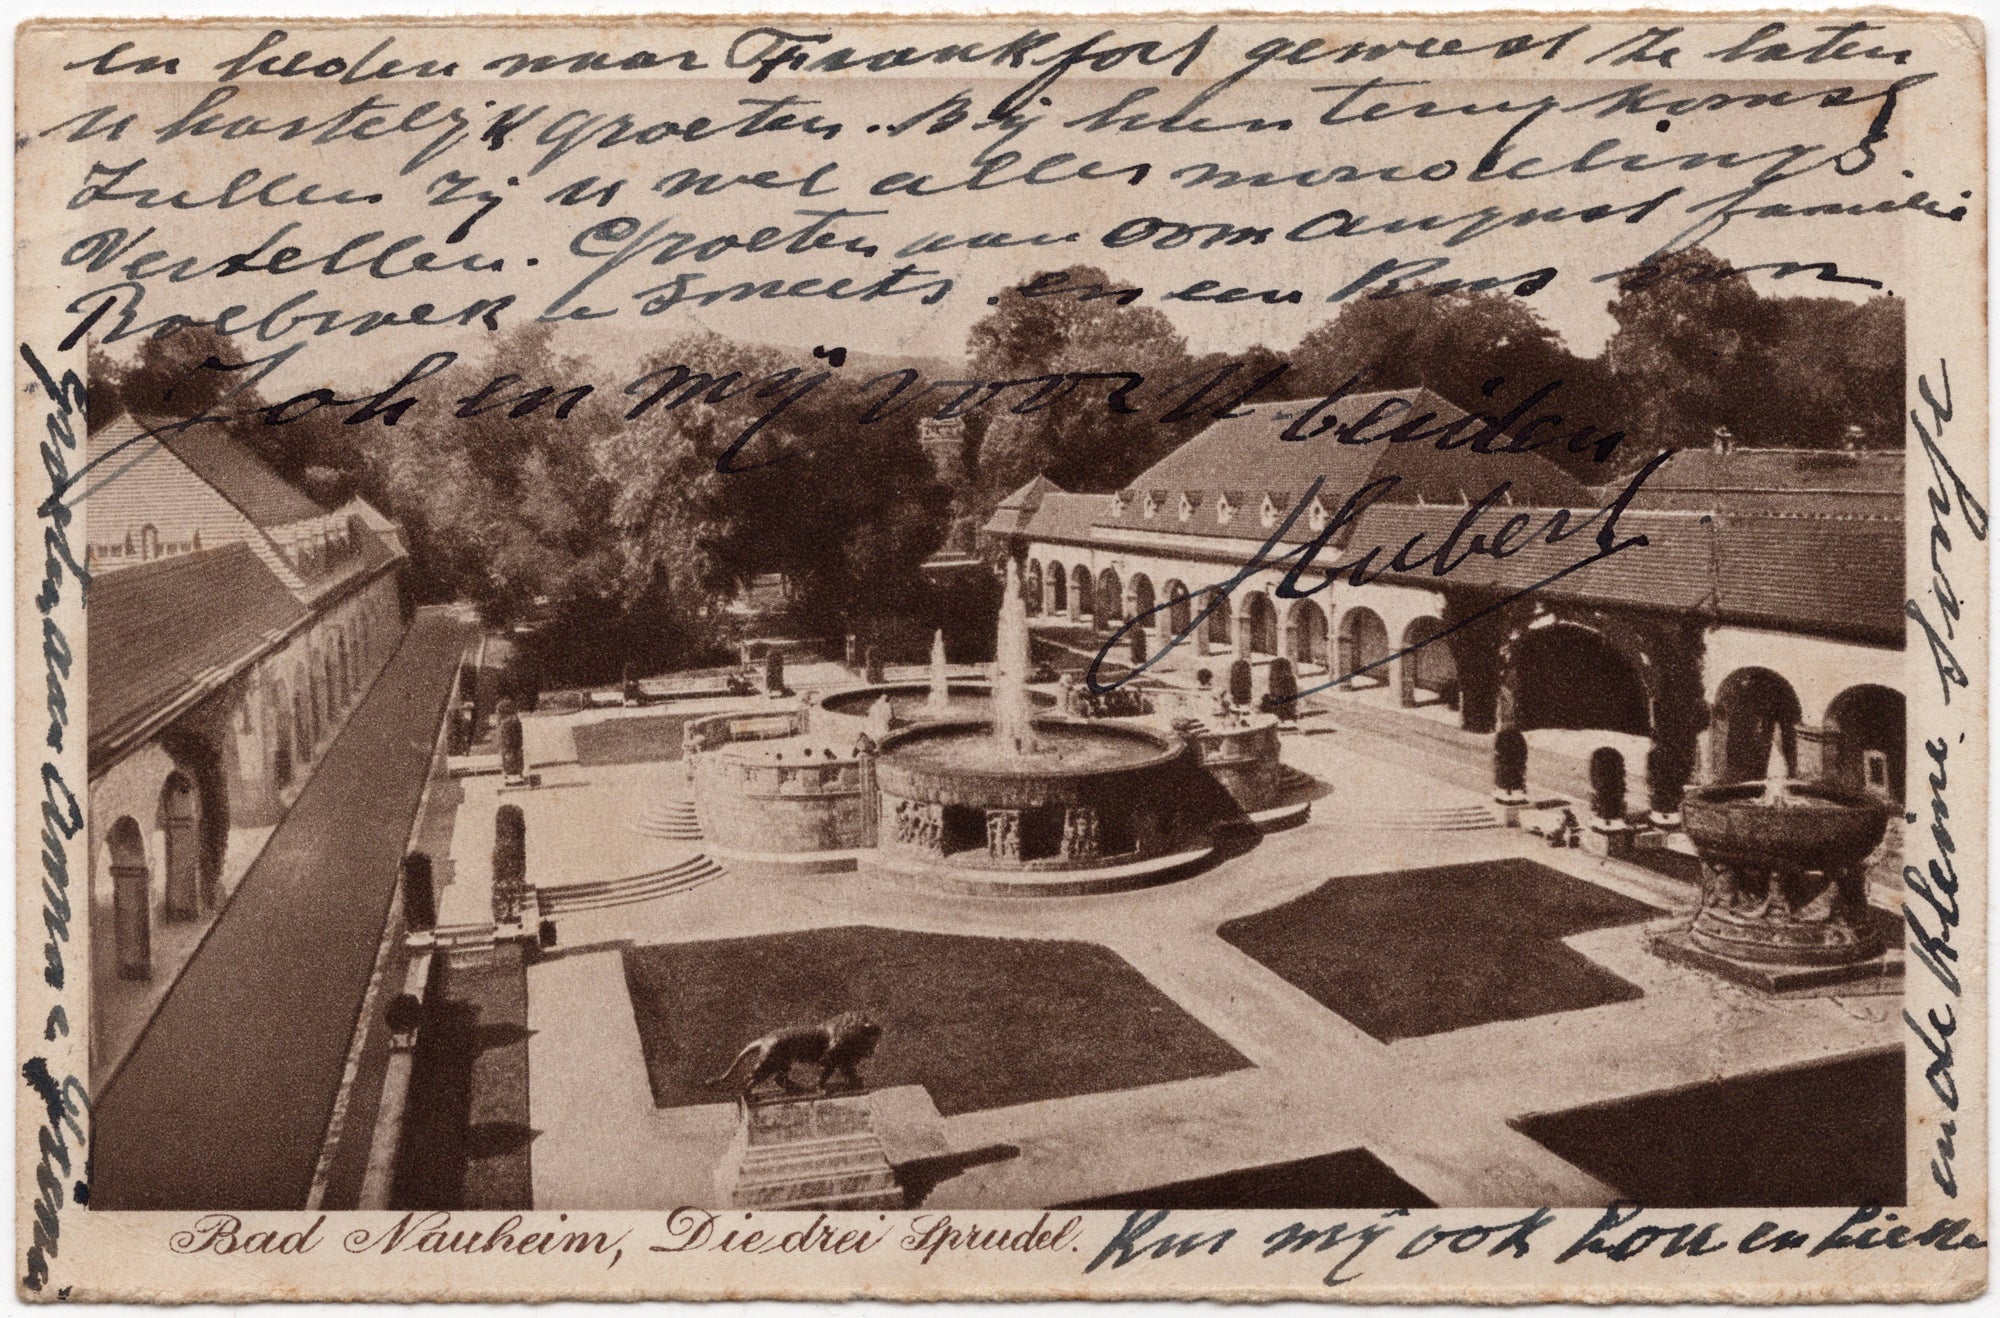 en heden naar Frankfort geweest te laten
u hartelijk groeten. Bij hun terugkomst
zullen zij u wel alles mondelings
Vertellen. Groeten aan oom August familie
Roebroek & Smeets. en een kus van
Joh en mij voor U beiden
Hubert
Groeten aan Anna &
Bad Nauheim, Die drei Sprudel.
Kus mij ook Lou en
en de kleine